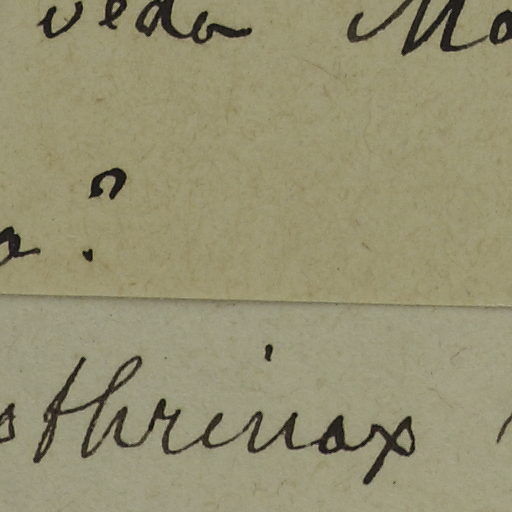 veda Mo
a ?
othrinax